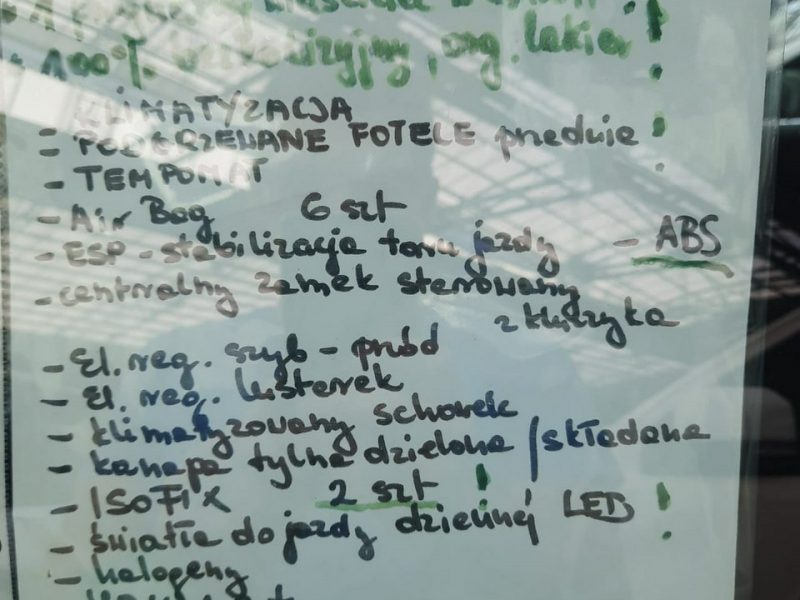 100% bezkolizyjny, org. lakier !
KLIMATYZACJA
= PODGRZEWANE FOTELE przednie !
- TEMPOMAT
- Air Bag 6 szt
- ESP - stabilizacja toru jazdy - ABS
- centralny zamek sterowany
z kluczyka
- El. reg. szyb - przód
- El. reg. lusterek
- klimatyzowany schowek
- kanapa tylna dzielona / składana
- ISOFIX 2 szt !
- światła do jazdy dziennej LED !
- halogeny